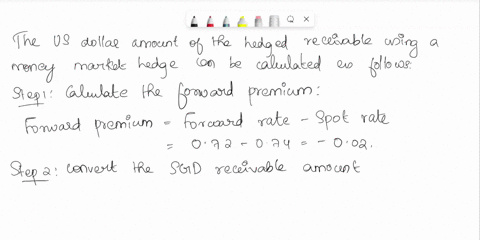 The US dollar amount of the hedged receivable using a
money market hedge can be calculated as follows:
Step1: Calculate the forward premium:
Forward premium = Forward rate - Spot rate
= 0.72 - 0.74 = - 0.02.
Step 2: convert the SGD receivable amount